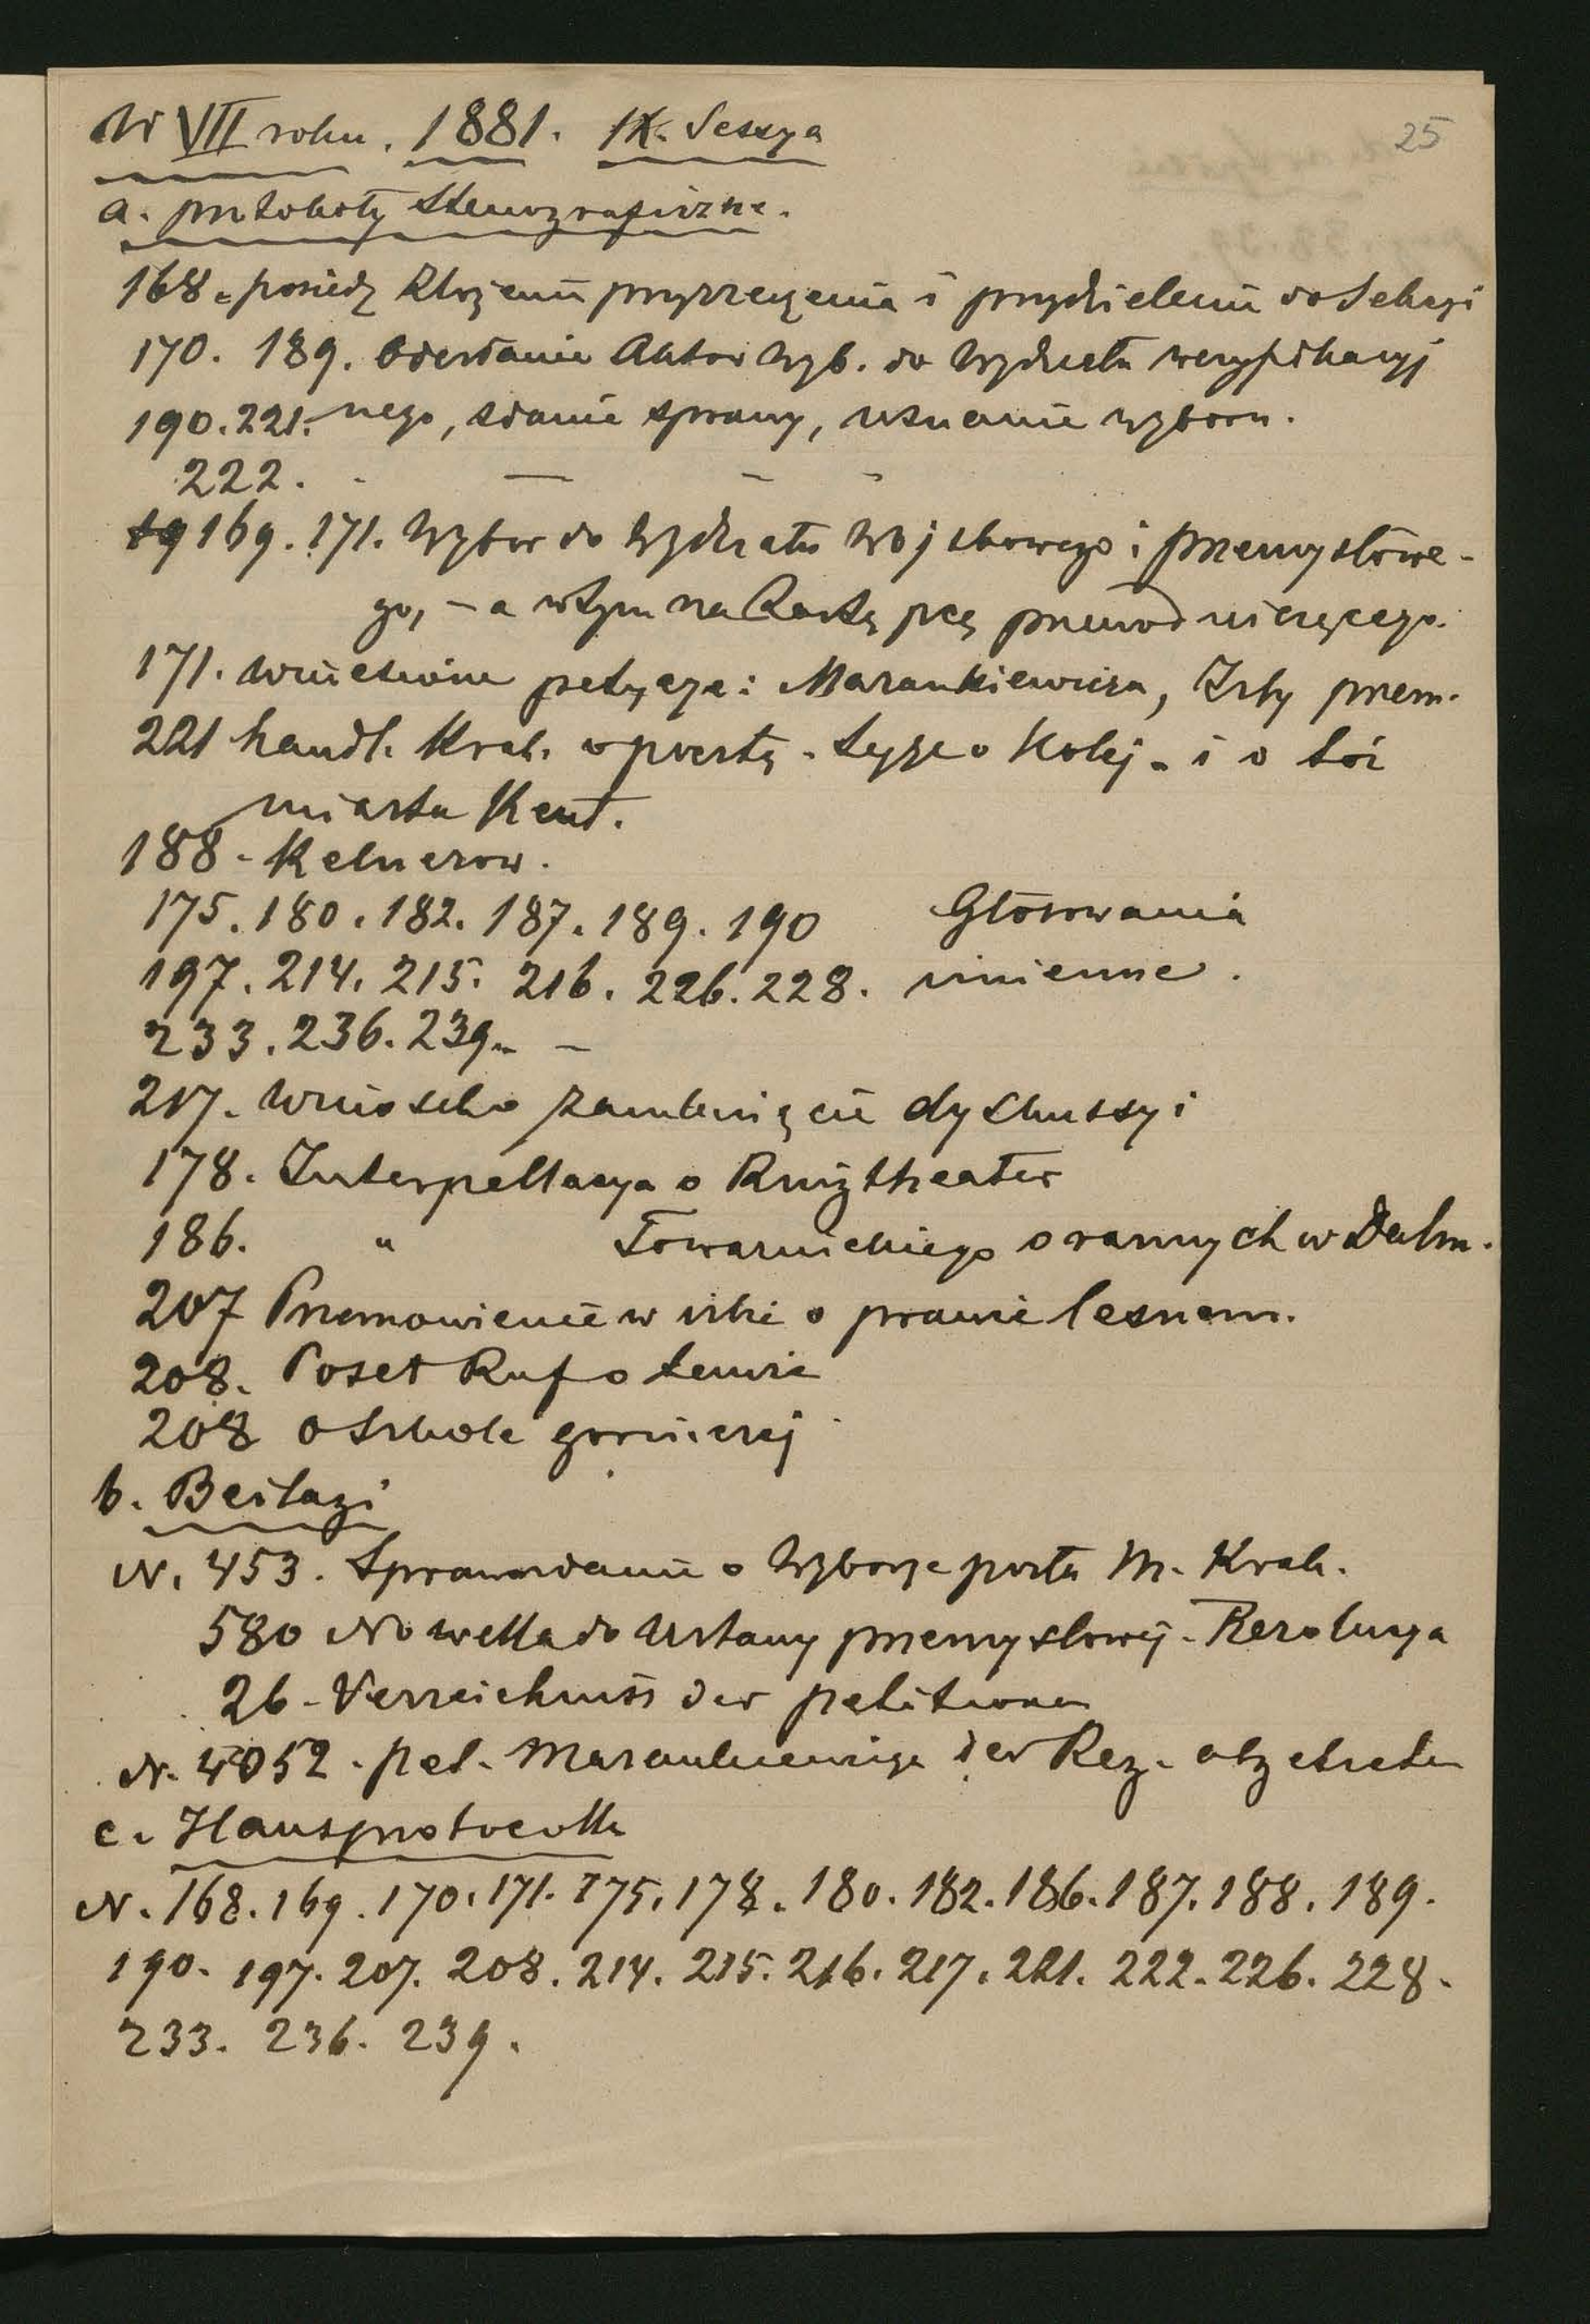 W VII roku. 1881. IX. Sessya
25
a. protokoły stenograficzne.
168. posiedz złożenie przyrzeczenia i przydzielenie do Sekcyi
170. 189. Odesłanie Aktów Wyb. do Wydziału weryfikacyj
190. 221. nego, zdanie sprawy, uznanie wyboru.
222. - — - -
169. 171. Wybór do Wydziału Wojskowego i przemysłowe-
go, - a w tym na przewodniczącego.
171. wniesione petycye: Marankiewicza, Izby przem.
221 handl. Krak. o pocztę - tyże o Kolej - i o toż
miasta Kent.
188 - Kelnerow.
175. 180. 182. 187. 189. 190 Głosowania
197. 214. 215. 216. 226. 228. imienne.
233. 236. 239. -
217. Wniosek o zamknięcie dyskussyi
178. Interpellacya o Ringtheater
186. " Towarnickiego o rannych w Dalm.
207 Przemowienie w izbie o prawie lesnem.
208. Poseł Ruf o temże
208 o szkole gorniczej
b. Beilagi
N. 453. Sprawozdanie o Wyborze posła M. Krak.
580 Nowella do Ustawy przemysłowej - Rezolucya
26 - Verzeichniss der petitionen
N. 4052 - pet. Marankiewicza der Reg. abgetreten
c. Hausprotocolle
N. 168. 169. 170. 171. 175. 178. 180. 182. 186. 187. 188. 189.
190. 197. 207. 208. 214. 215. 216. 217. 221. 222. 226. 228.
233. 236. 239.